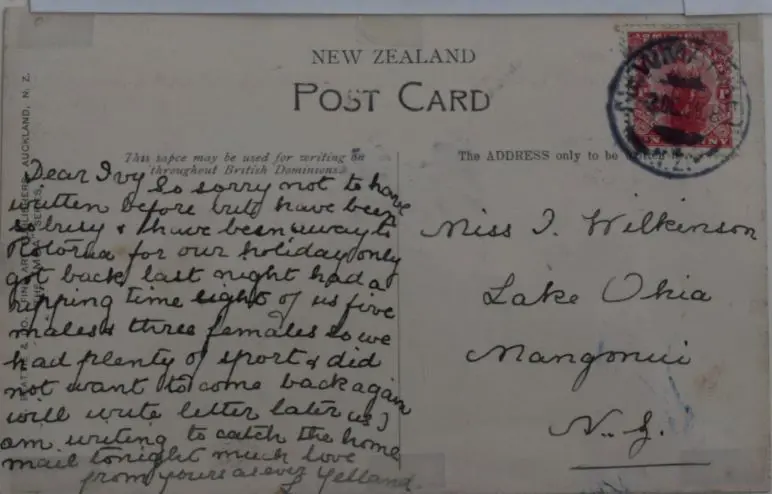 NEW ZEALAND
POST CARD
This sapce may be used for writing on
throughout British Dominions.
The ADDRESS only to be
Dear Ivy So sorry not to have
written before but have been
so busy & have been away to
Rotorua for our holiday only
got back last night had a
ripping time eight of us five
males & three females so we
had plenty of sport & did
not want to come back again
will write letter later as I
am writing to catch the home
mail tonight much love
from yours as ever Yelland.
Miss I. Wilkinson
Lake Ohia
Mangonui
N.Z.
& CO. FINE ART PUBLISHERS, AUCKLAND, N. Z.
SERIES.
N.Z.